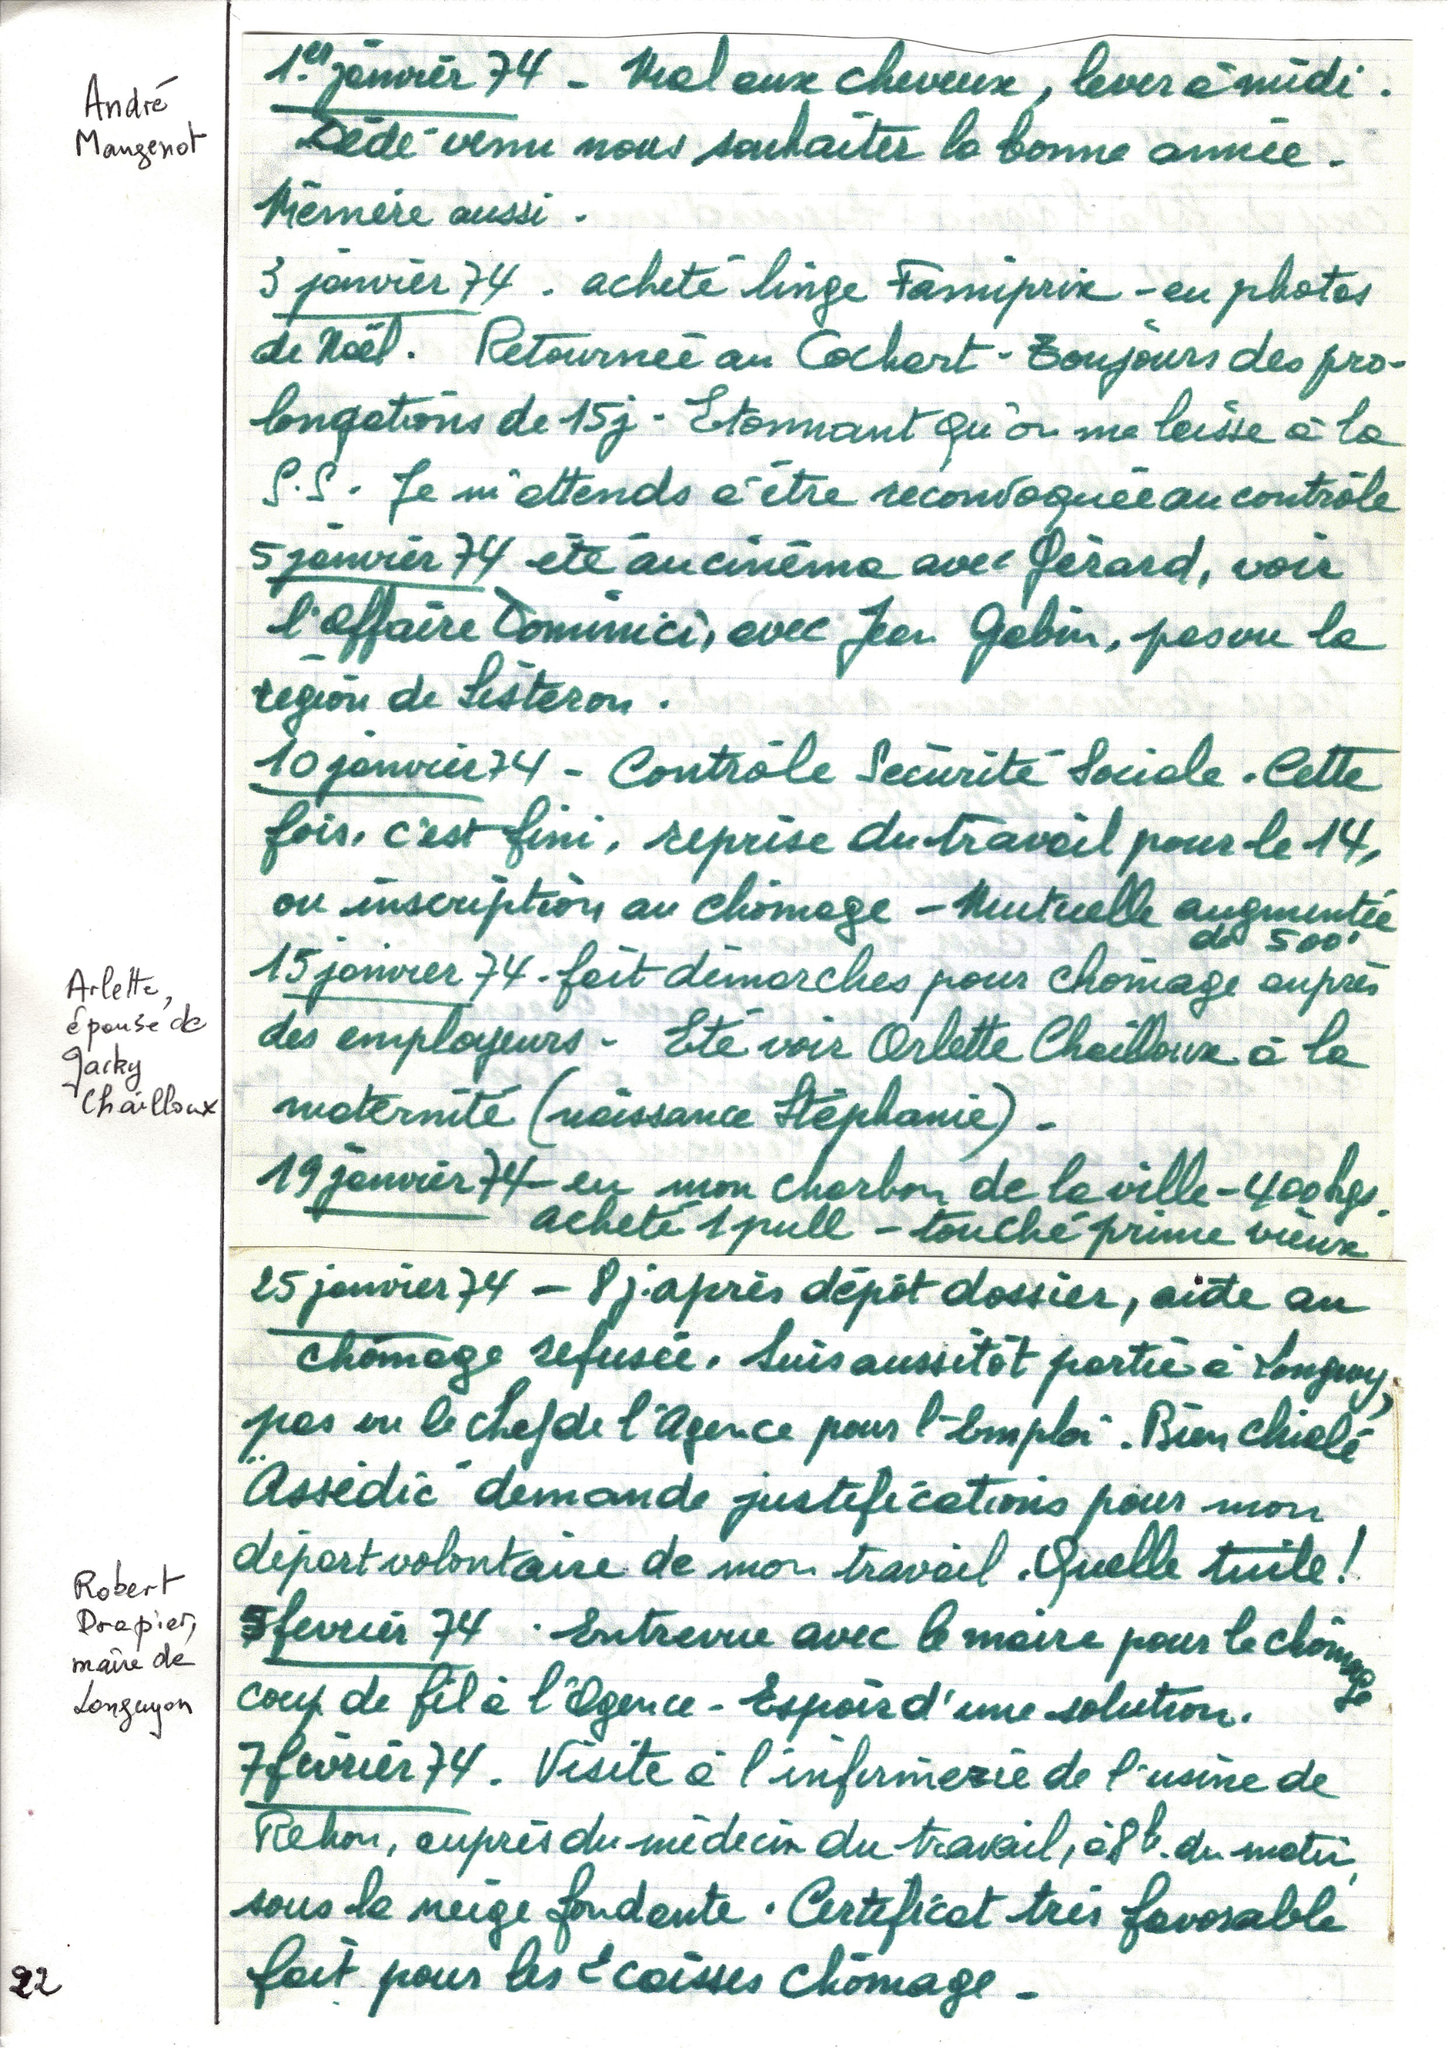 André
Mangenot
1.er janvier 74 - Mal aux cheveux, lever à midi.
Dédé venu nous souhaiter la bonne année.
Mémère aussi.
3 janvier 74. acheté linge Familiprix - eu photos
de Noël. Retournée au Cochart - Toujours des pro-
longations de 15j - Etonnant qu'on me laisse à la
S.S. Je m'attends à être reconvoquée au contrôle
5 janvier 74 été au cinéma avec Gérard, voir
l'affaire Dominici, avec Jean Gabin, pas vu la
région de Sisteron.
10 janvier 74 - Contrôle Sécurité Sociale. Cette
fois, c'est fini, reprise du travail pour le 14,
ou inscription au chômage - Mutuelle augmentée
de 500'
Arlette,
épouse de
Jacky
Chailloux
15 janvier 74. fait démarches pour chômage auprès
des employeurs - Eté voir Arlette Chailloux à la
maternité (naissance Stéphanie) -
19 janvier 74 - eu mon charbon de la ville - 400 kgs.
acheté 1 pull - touché prime vieux
25 janvier 74 - 8 j. après dépôt dossier, aide au
chômage refusée. Suis aussitôt partie à Longwy,
pas vu le chef de l'Agence pour l'Emploi. Bien chialé
"Assédic" demande justifications pour mon
départ volontaire de mon travail. Quelle tuile!
Robert
Drapier,
maire de
Longuyon
5 fevrier 74. Entrevue avec le maire pour le chômage
coup de fil à l'Agence - Espoir d'une solution.
7 février 74. Visite à l'infirmerie de l'usine de
Rehon, auprès du médecin du travail, à 8h. du matin,
sous la neige fondante. Certificat très favorable
fait pour les 2 caisses chômage -
22